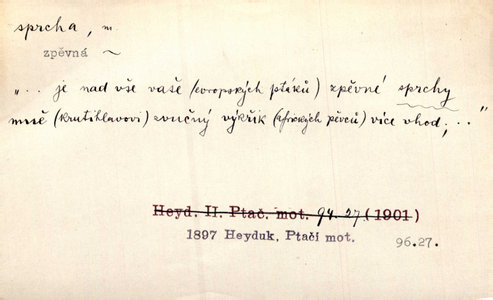 sprcha, m.
zpěvná ~
„.. je nad vše vaše (evropských ptáků) zpěvné sprchy
mně (krutihlavovi) zvučný výkřik (afrických pěvců) více vhod, .."
Heyd. II. Ptač. mot. 94. 27 (1901)
1897 Heyduk, Ptačí mot.
96.27.